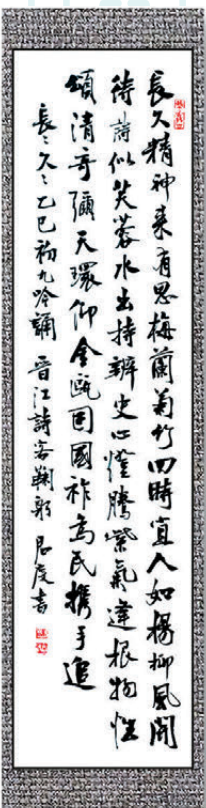 長久精神來有思梅蘭菊竹四時宜人如楊柳風開
待詩似芙蓉水出持辨史心燈騰紫氣達根物性
頌清奇彌天環仰金甌固國祚為民攜手追
長〻久〻乙巳初九吟誦 晉江詩客鞠躬 度書